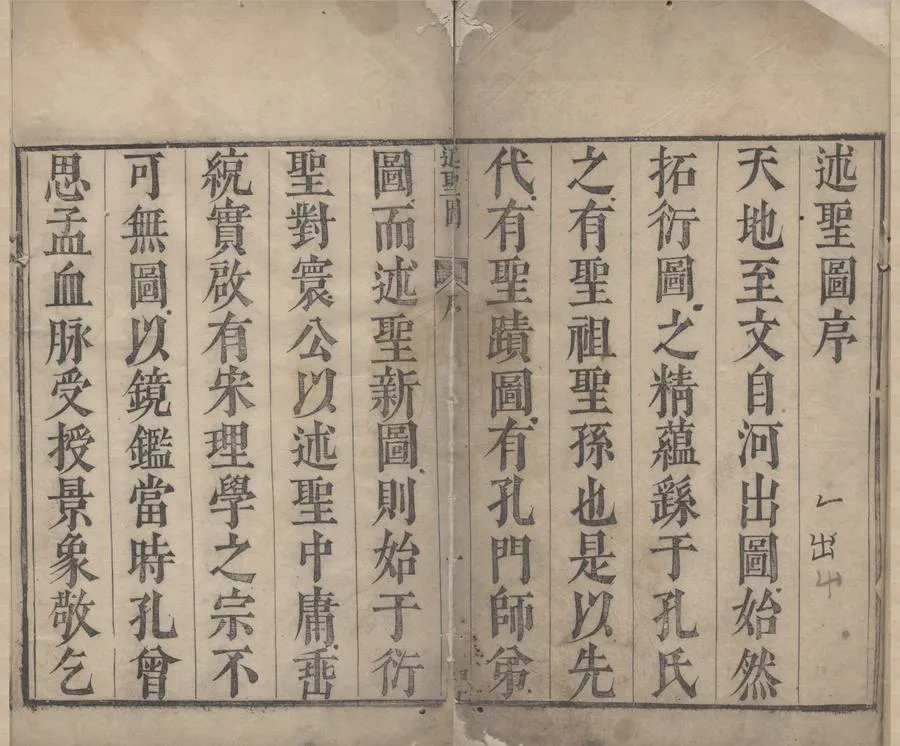 述聖圖序
天地至文自河出圖始然
拓衍圖之精蘊繇于孔氏
之有聖祖聖孫也是以先
代有聖蹟圖有孔門師弟
述聖圖
序
一
圖而述聖新圖則始于衍
聖對寰公以述聖中庸垂
統實啟有宋理學之宗不
可無圖以鏡鑑當時孔曾
思孟血脉受授景象敬乞